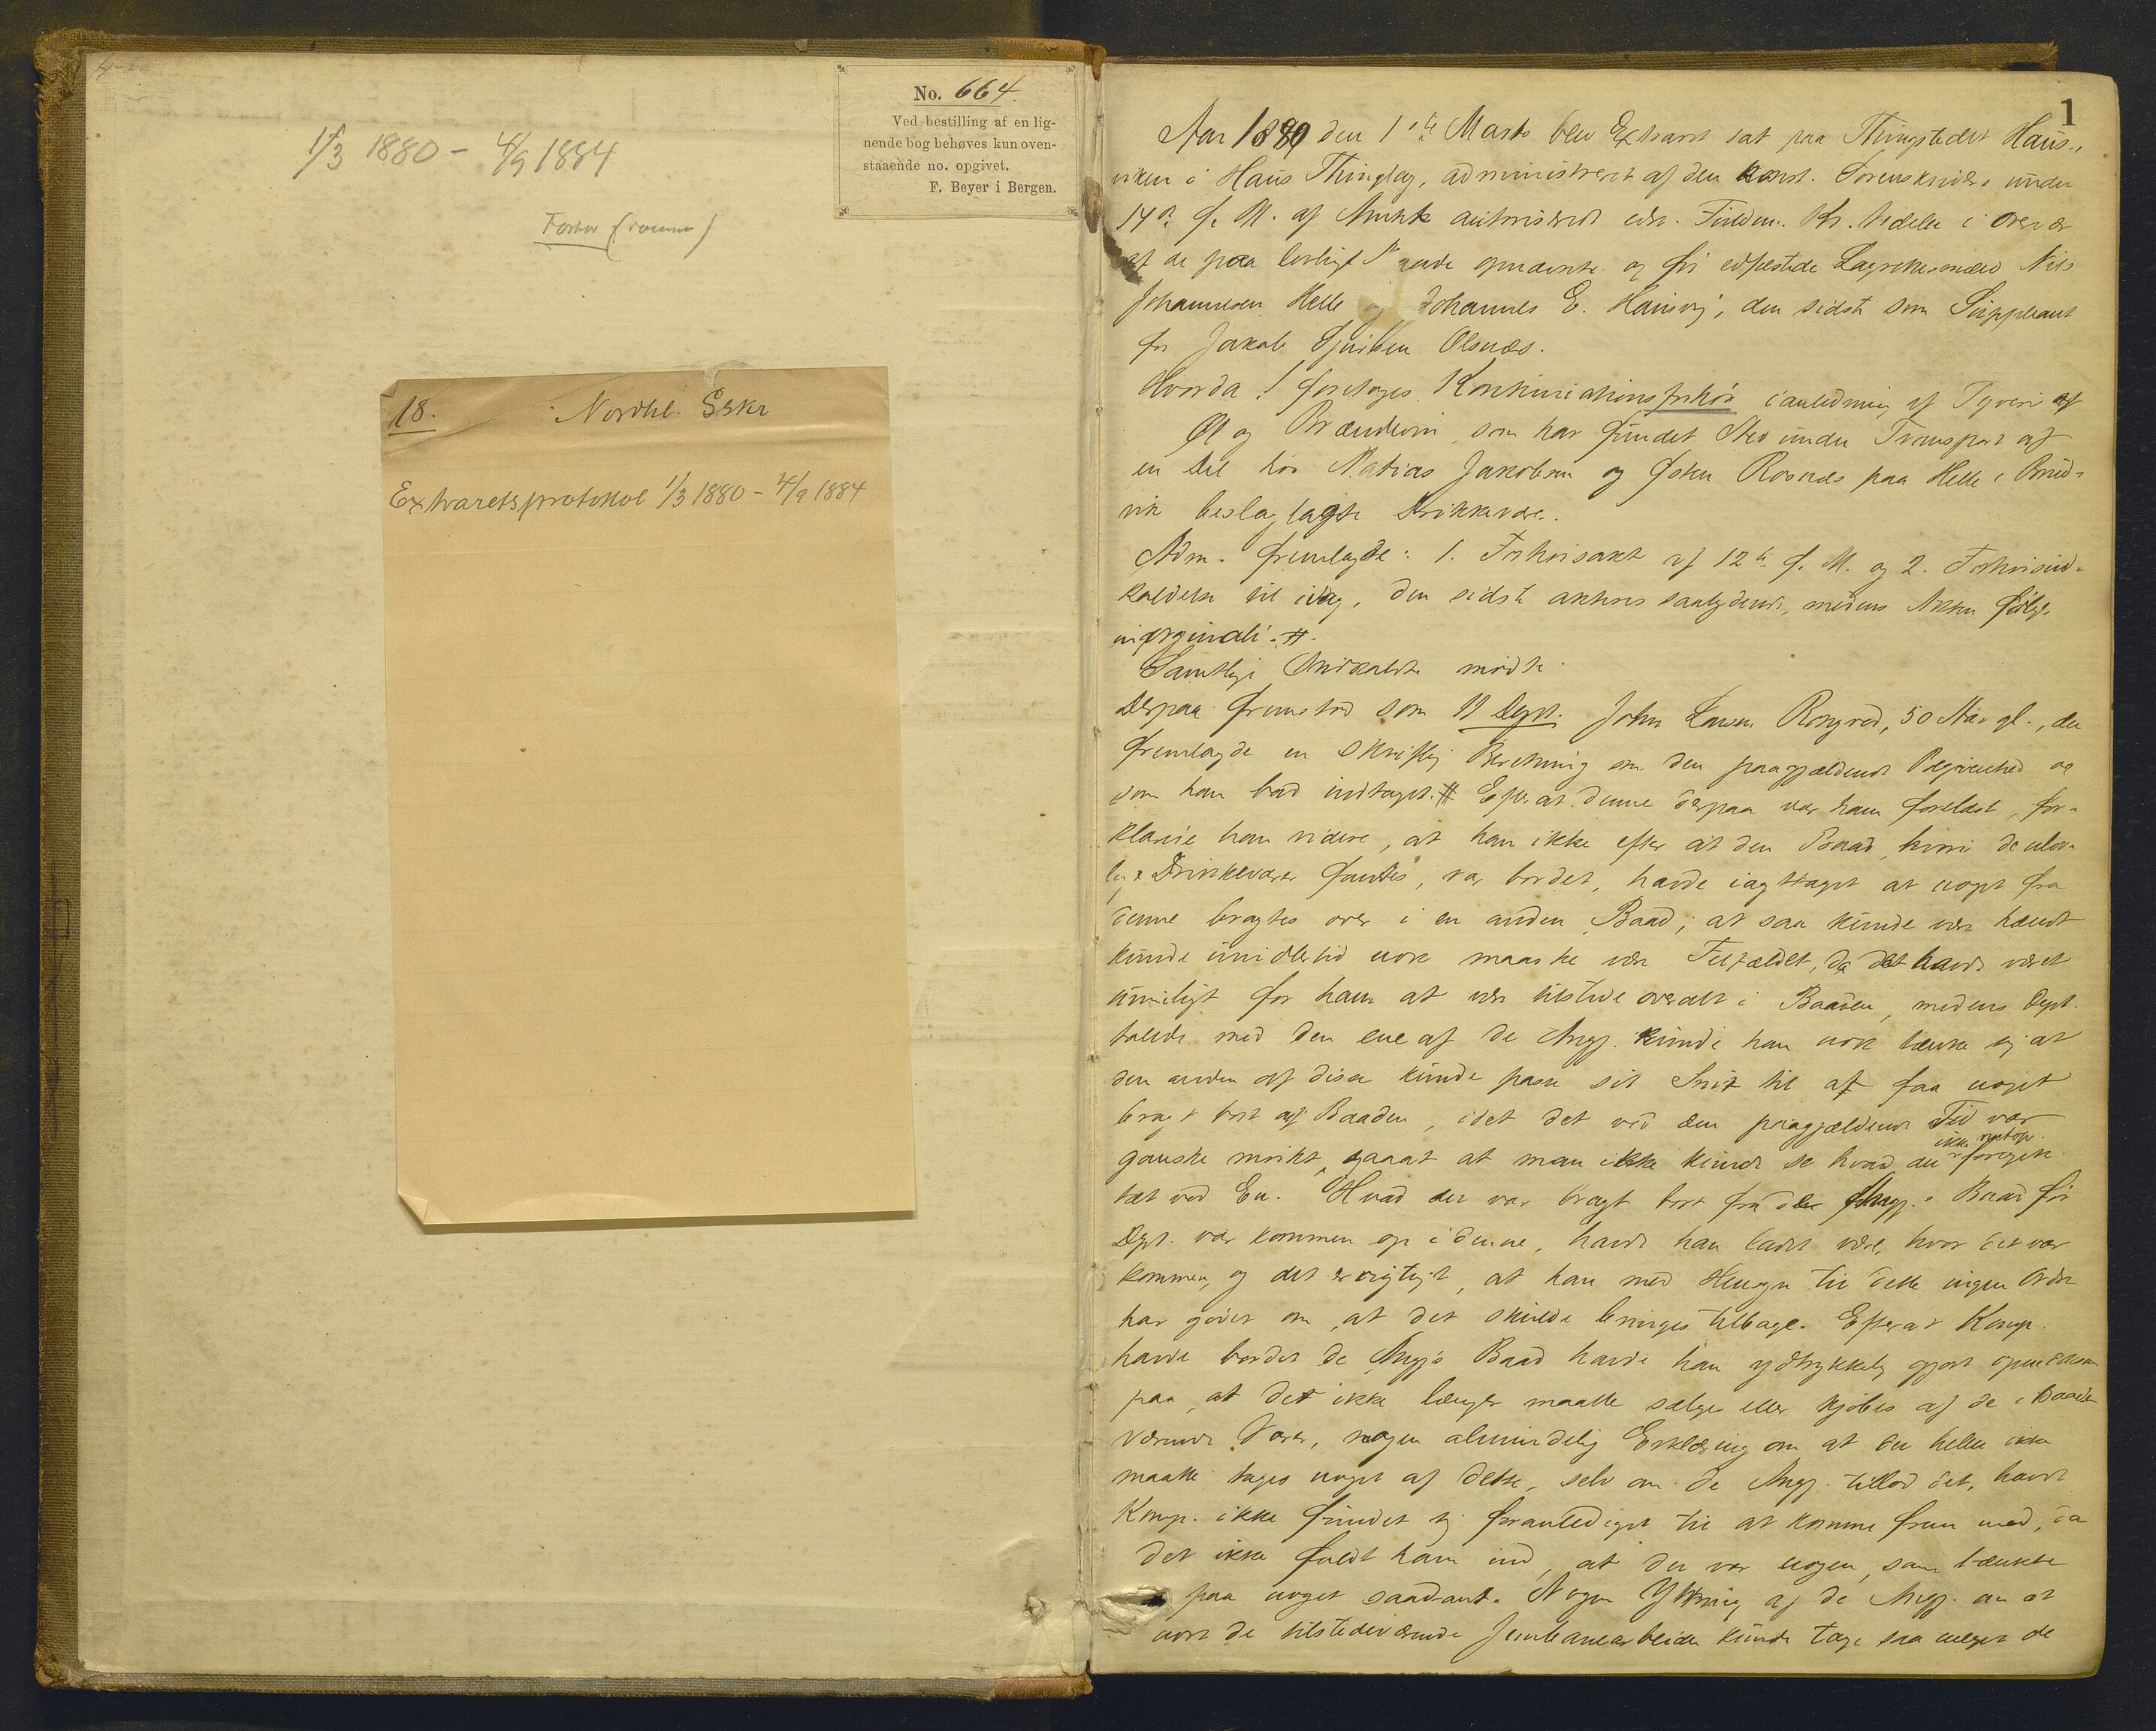 1/3 1880 - 4/9 1884
No. 664.
Ved bestilling af en lig-
nende bog behøves kun oven-
staaende no. opgivet.
F. Beyer i Bergen.
18. Nordhl. Sskr
Extraretsprotokol 1/3 1880 - 4/9 1884
1
Aar 1880 den 1ste Marts blev Extraret sat paa Thingstedet Haus-
viken i Haus Thinglag, administreret af den konst. Sorenskriver under
14de f. M. af Amtet autoriserede edsv. Fuldm. Kr. Vedeler i Overvær
af de paa lovligt opnævnte og før edfæstede Lagrettesmænd Nils
Johannesen Helle og Johannes E. Hausvig, den sidste som Suppleant
for Jakob Sjursen Olsnæs.
Hvorda: foretoges Kontinuationsforhør i anledning af Tyveri af
Øl og Brændevin, som har fundet Sted under Transport af
en Del hos Matias Jakobsen og Østen Rosnæs paa Helle i Brud-
vik beslaglagte Drikkevare.
Adm. fremlagde: 1. Forhørsakt af 12te f. M. og 2. Forhørsind-
kaldelse til idag, den sidste akteres saalydende, medens Akten følger
in originali. #.
Samtlige Indkaldte mødte.
Derpaa fremstod som 11 Dept. John Larsen Rongved, 50 Aar gl., der
fremlagde en skriftlig Beretning om den paagjældende Begivenhed og
som han bad indtaget. # Efter at denne derpaa var ham forelæst, for-
klarede han videre, at han ikke efter at den Baad, hvori de ulov-
lige Drikkevarer fandtes, var bordet, havde iagttaget at noget fra
denne bragtes over i en anden Baad; at saa kunde være hændt
kunde imidlertid nok maaske være Tilfældet, da det havde været
umuligt for ham at være tilstede overalt i Baaden, medens Dept.
talede med den ene af de Angj. kunde han nok tænke sig at
den anden af disse kunde passe sit Snit til at faa noget
bragt bort af Baaden, idet det ved den paagjældende Tid var
ganske mørkt, saaat at man ikke kunde se hvad der ikke netop foregik
tæt ved En. Hvad der var bragt bort fra de Angj.s Baad før
Dept. var kommen op i denne, havde han ladet være, hvor det var
kommen, og det er rigtigt, at han med Hensyn til dette ingen Ordre
har givet om, at det skulde bringes tilbage. Efterat Komp.
havde bordet de Angj.s Baad havde han udtrykkelig gjort opmærksom
paa, at det ikke længer maatte sælges eller kjøbes af de i Baaden
værende Varer, nogen almindelig Erklæring om at der heller ikke
maatte tages noget af dette, selv om de Angj. tillod det, havde
Komp. ikke fundet sig foranlediget til at komme frem med, da
det ikke faldt ham ind, at der var nogen, som tænkte
paa noget saadant. Nogen Yttring af de Angj. om at
nok de tilstedeværende Jernbanearbeider kunde tage saa meget de